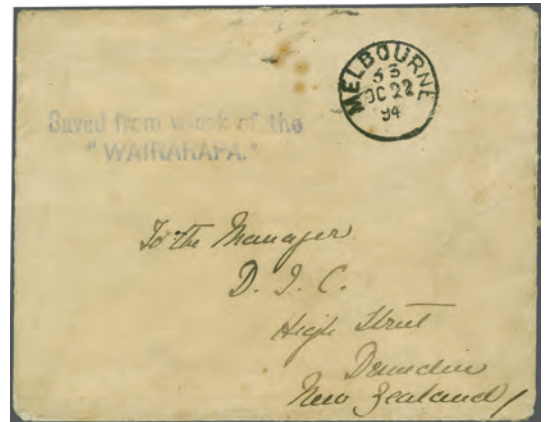 MELBOURNE
53
OC 22
94
Saved from wreck of the
"WAIRARAPA."
To the Manager
D. I. C.
High Street
Dunedin
New Zealand